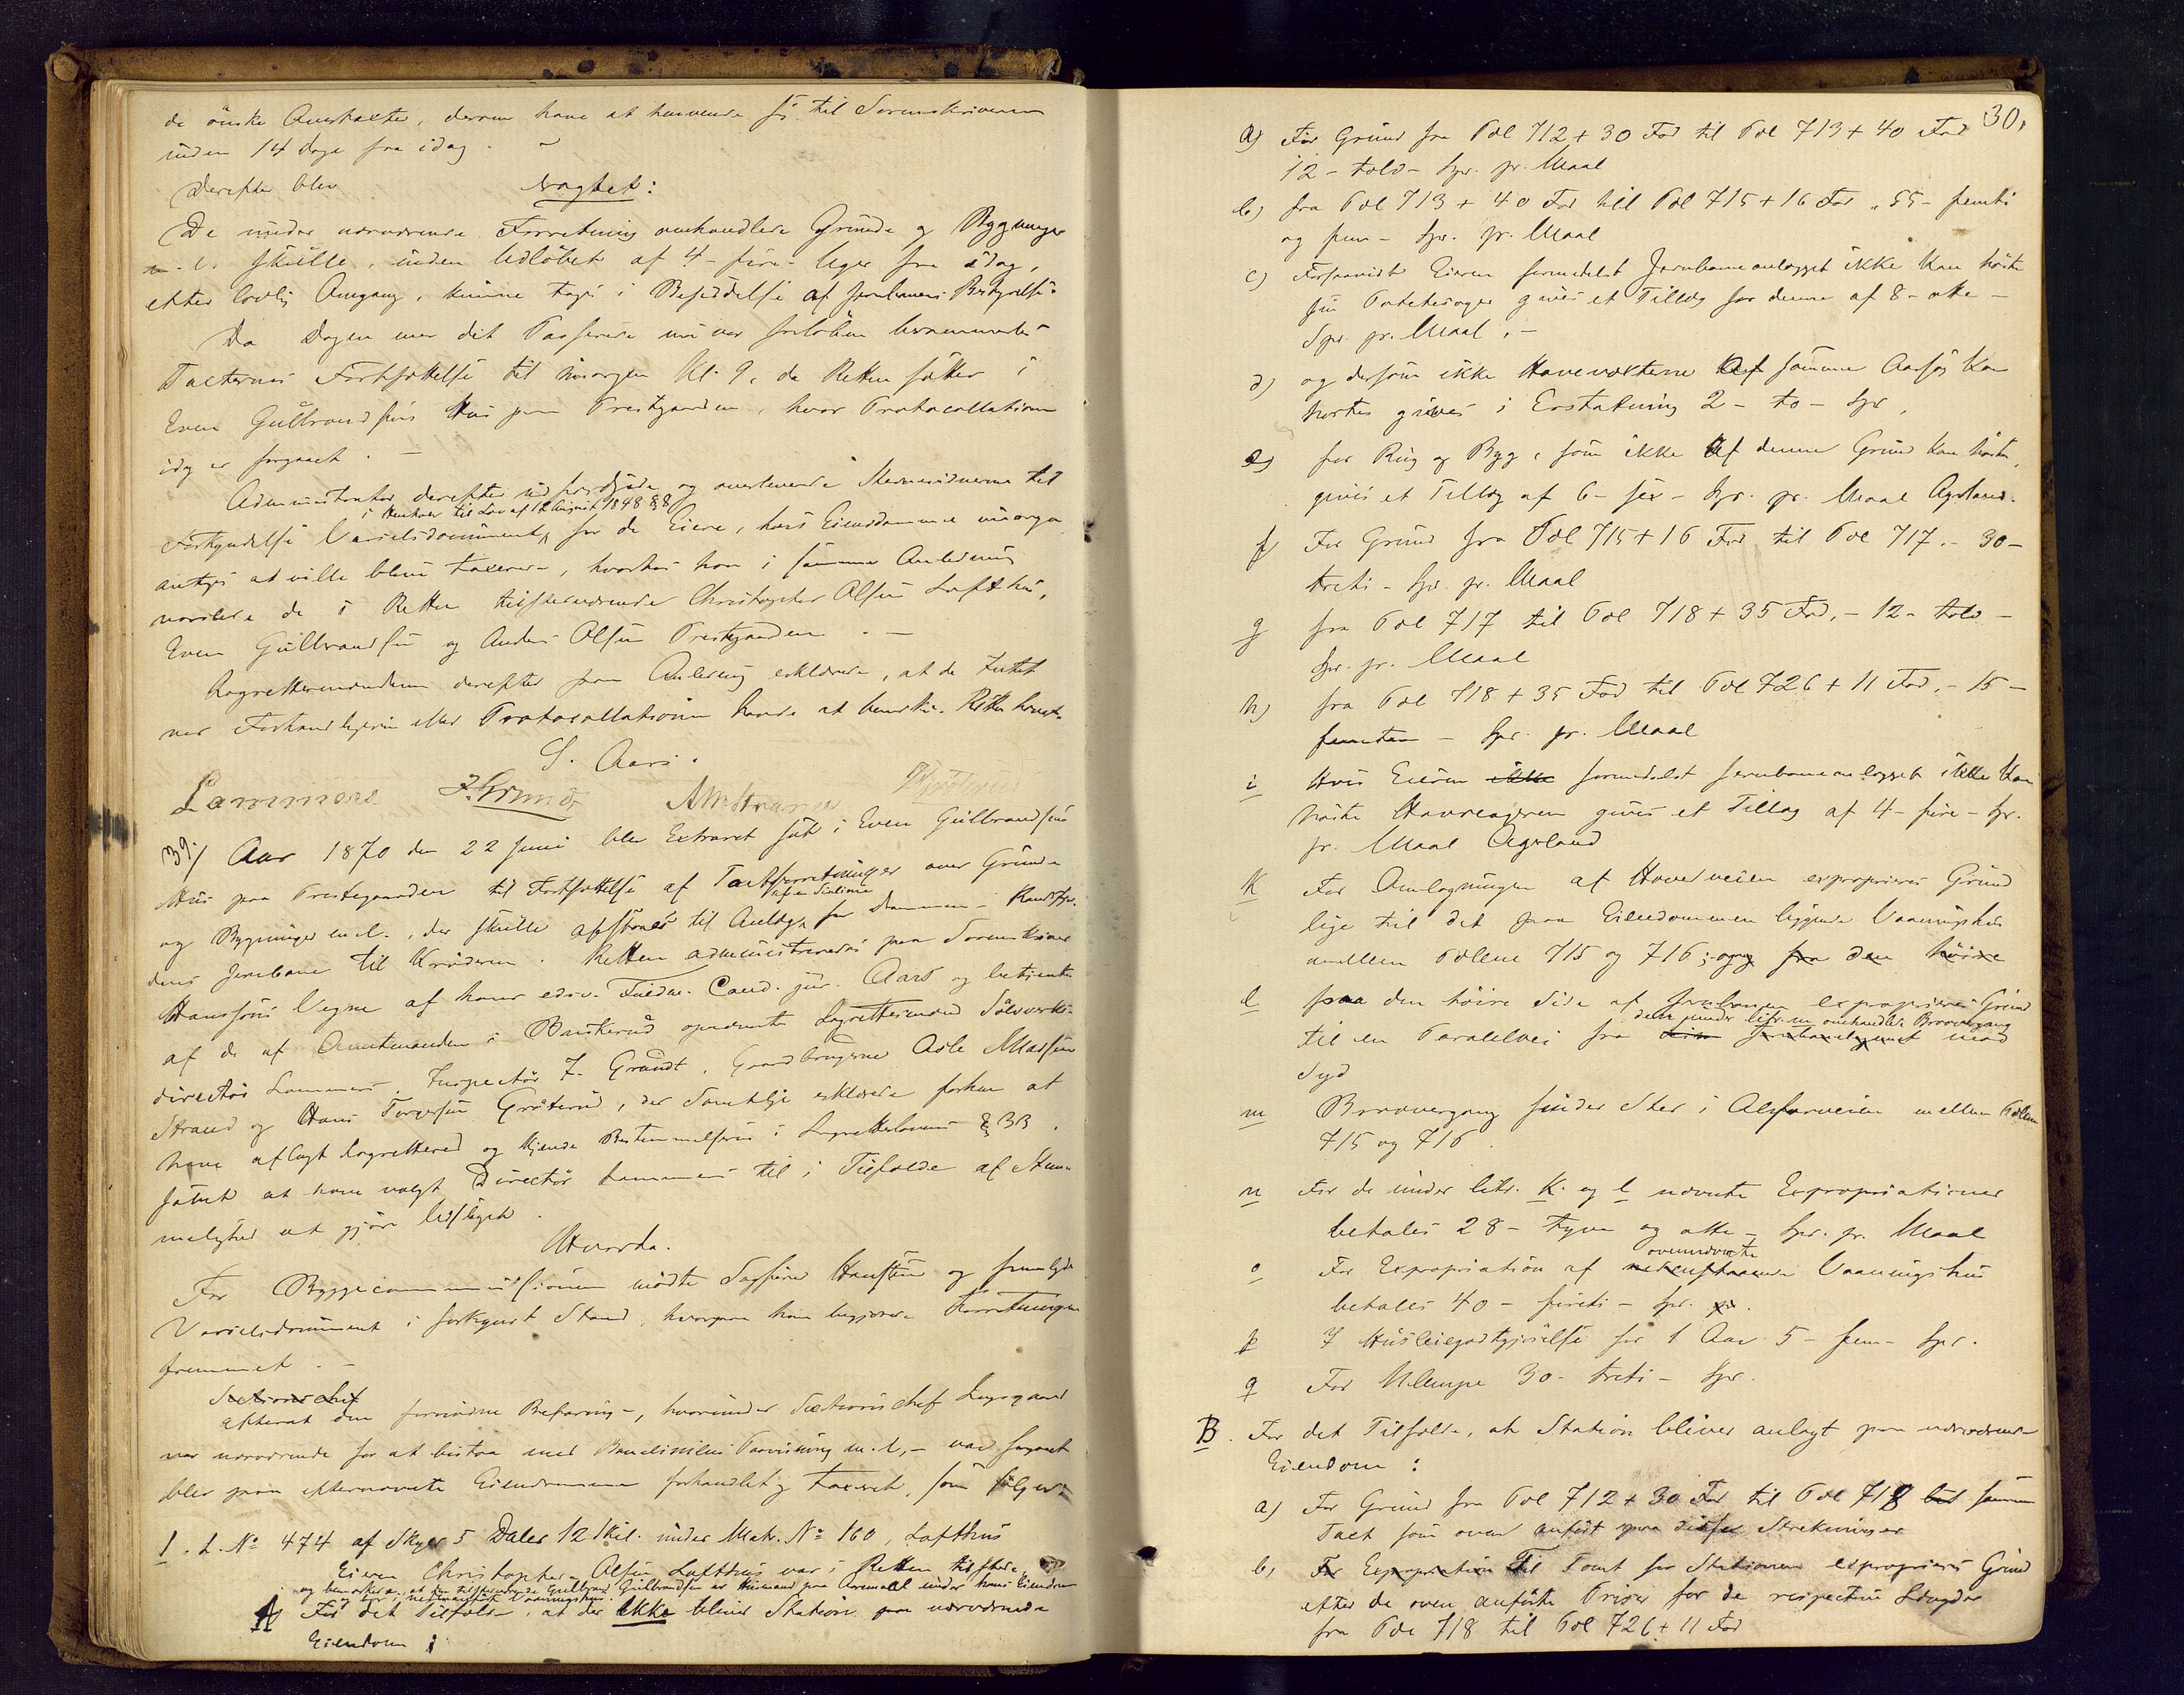 de önske Overtaxter, derom have at henvende sig til Sorenskriveren
inden 14 dage fra idag. –
Derefter blev
Vragtet:
De under nærværende Forretning omhandlede Grunde og Bygninger
m. v. skulle, inden Udløbet af 4 - fire - Uger fra idag,
efter lovlig Omgang, kunne tages i Besiddelse af Jernbanens Bestyrelse.
Da Dagen med det Passerede nu var forløben berammedes
Taxternes Fortsættelse til imorgen Kl. 9, da Retten sættes i
Even Gulbrandsens Hus paa Prestegaarden, hvor Protocollationen
idag er foregaaet. –
Administrator derefter og overleverede Stævnevidnerne til
i Henhold til Lov af 12 August 1848 § 8
Forkyndelse Varselsdocument for de Eiere, hvis Eiendomme imorgen
antages at ville blive taxerede, hvorhos han i samme Anledning
varslede de i Retten tilstedeværende Christopher Olsen Lofthus,
Even Gulbrandsen og Anders Olsen Prestegaarden. –
Lagrettemændene derefter paa Anledning erklærede, at de Intet
ved Forhandlingerne eller Protocollationen havde at bemærke. Retten hævet.
S. Aars.
Lammers. J. Grundt A M Strand
39./ Aar 1870 den 22 Juni blev Extraret sat i Even Gulbrandsens
Hus paa Prestegaarden til Fortsættelse af Taxtforretninger over Grunde
og Bygninger m. v., der skulle afstaaes til Anlæg af en Sidelinie fra Drammen - Randsfjor-
dens Jernbane til Krøderen. Retten administreredes paa Sorenskriver
Hansons Vegne af hans edsv. Fuldm. Cand. jur. Aars og betjentes
af de af Amtmanden i Buskerud opnævnte Lagrettesmænd Sølvverks-
directør Lammers, Inspectør J. Grundt, Gaardbrugerne Asle Madsen
Strand og Hans Torgersen Grøterud, der Samtlige erklærede forhen at
have aflagt Lagretteed og kjende Bestemmelserne i Lagretteloven § 33.
samt at have valgt Directør Lammers til i Tilfælde af Stem-
melighed at gjøre Udslaget.
Hvorda.
For Byggecommissionen mødte Sagfører Hansteen og fremlagde
Varselsdocument i forkyndt Stand, hvorpaa han begjærede Forretningen
fremmet. –
Sectionschef
Efterat den fornødne Befaring, hvorunder Sectionschef Lysgaard
var nærværende for at bistaa med Banelinies Paavisning m. v., – var foregaaet
blev paa efternævnte Eiendomme forhandlet og taxeret, som følger:
1. L. No 474 af Skyld 5 Daler 12 Skil. under Matr. No 160, Lofthus
Eieren Christopher Olsen Lofthus var i Retten tilstede
og bemærkede, at den tilstedeværende Gulbrand Gulbrandsen er Husmand paa under hans Eiendom
og bor i nedennævnte Vaaningshus.
A For det Tilfælde, at der ikke bliver Station paa nærværende
Eiendom:
30.
a) For Grund fra Pæl 712 + 30 Fod til Pæl 713 + 40 Fod
12 - tolv - Spd. pr. Maal
b) fra Pæl 713 + 40 Fod til Pæl 715 + 16 Fod, 55 - femti
og fem - Spd. pr. Maal
c) Forsaavidt Eieren formedelst Jernbaneanlægget ikke kan høste
sin Potetesager gives et Tillæg for denne af 8 - otte -
Spd. pr. Maal. –
d) og dersom ikke Havevæxterne af samme Aarsag kan
høstes gives i Erstatning 2 - to - Spd.
e) for Rug og Byg, som ikke af denne Grund kan høstes,
gives et Tillæg af 6 - sex - Spd. pr. Maal Agerland.
f For Grund fra Pæl 715 + 16 Fod til Pæl 717. - 30 -
treti - Spd. pr. Maal
g fra Pæl 717 til Pæl 718 + 35 Fod, - 12 - tolv -
Spd. pr. Maal
h) fra Pæl 718 + 35 Fod til Pæl 726 + 11 Fod, - 15 -
femten - Spd. pr. Maal
i Hvis Eieren ikke formedelst Jernbaneanlægget ikke kan
høste Havreageren gives et Tillæg af 4 - fire - Spd.
pr. Maal Agerland
k For Omlægningen af Hovedveien exproprieres Grund
lige til det paa Eiendommen liggende Vaaningshus
mellem Pælene 715 og 716; og fra den høire
l paa den høire Side af Jernbanen exproprieres Grund
den under litr. m omhandlede Broovergang
til en Paralelvei fra Linie Jernbanelegemet mod
Syd
m Broovergang finder Sted i Alfarveien mellem Pælene
715 og 716.
n For de under litr. k. og l nævnte Expropriationer
betales 28 - tyve og otte - Spd. pr. Maal
ovennævnte
o For Expropriation af nedenstaaende Vaaningshus
betales 40 - firti - Spd. pr.
p I Husleiegodtgjørelse for 1 Aar 5 - fem - Spd.
q For Ulempe 30 - treti - Spd.
B. For det Tilfælde, at Station bliver anlagt paa nærværende
Eiendom:
a) For Grund fra Pæl 712 + 30 Fod til Pæl 718 bet samme
Taxt som oven anført paa disse Strekninger
b) For Expropriation Til Tomt for Stationen exproprieres Grund
efter de oven anførte Priser for de respective Længder
fra Pæl 718 til Pæl 726 + 11 Fod